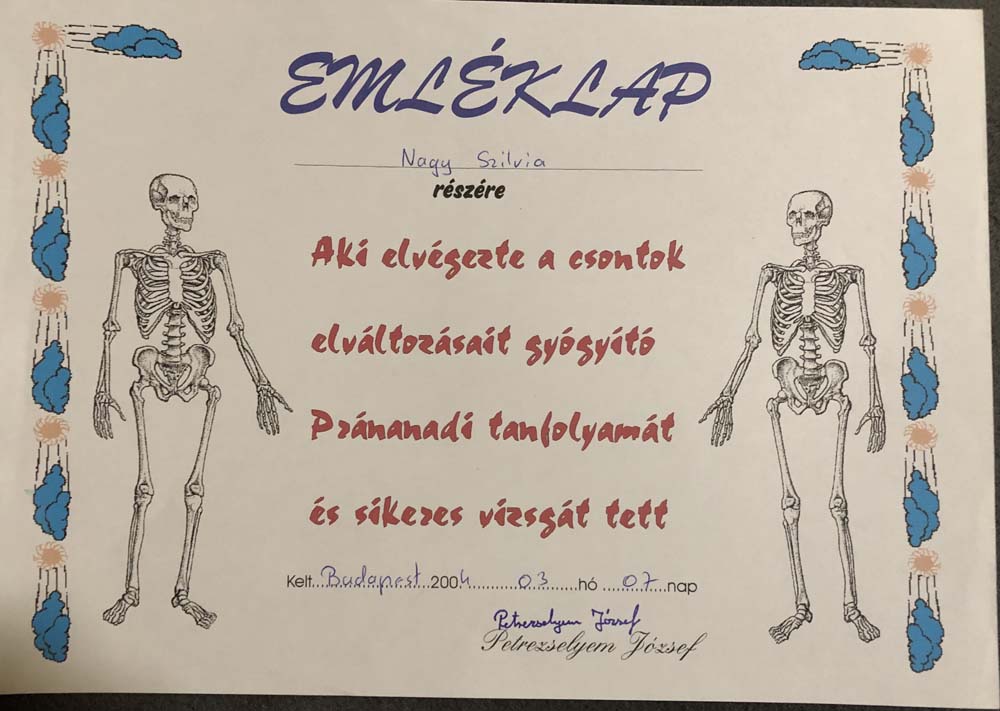 EMLÉKLAP
Nagy Szilvia
részére
Aki elvégezte a csontok
elváltozásait gyógyító
Pránanadi tanfolyamát
és sikeres vizsgát tett
Kelt...Budapest...2004.........03......hó ...07....nap
Petrezselyem József
Petrezselyem József